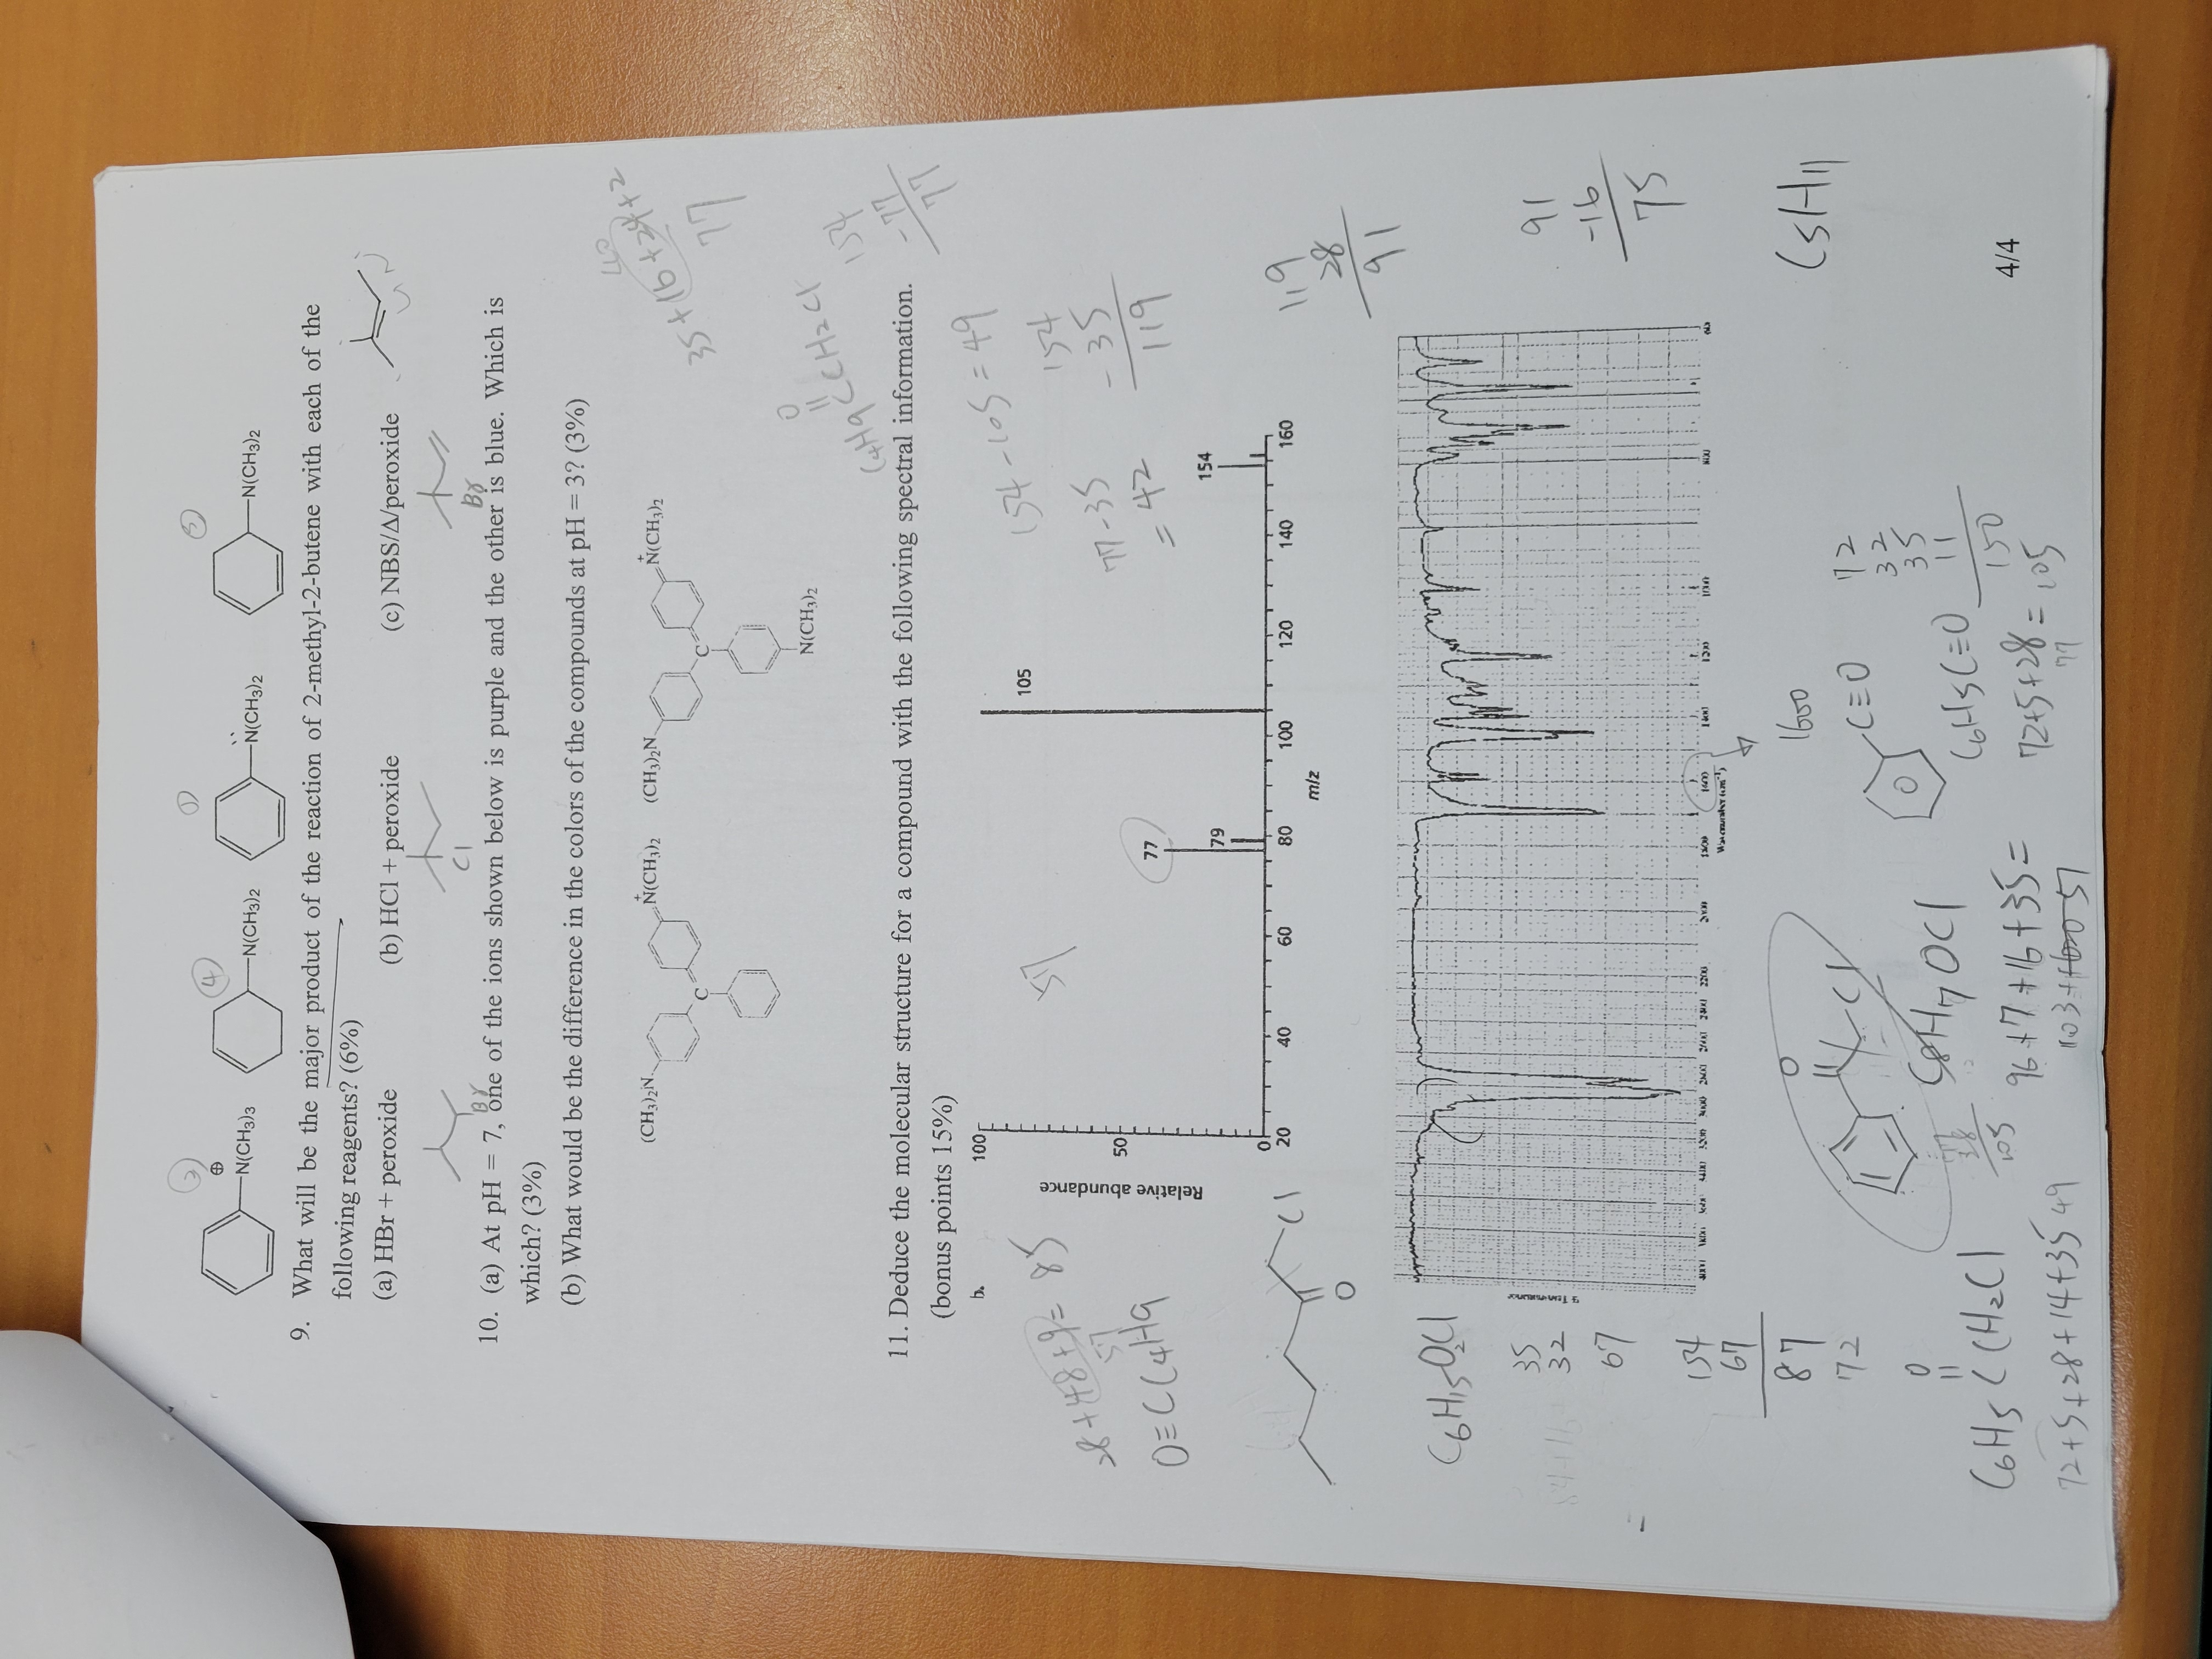 ②
④
①
⑤
⊕
N(CH3)3
N(CH3)2
N(CH3)2
N(CH3)2
9. What will be the major product of the reaction of 2-methyl-2-butene with each of the
following reagents? (6%)
(a) HBr + peroxide
(b) HCl + peroxide
(c) NBS/Δ/peroxide
Br
Cl
Br
10. (a) At pH = 7, one of the ions shown below is purple and the other is blue. Which is
which? (3%)
(b) What would be the difference in the colors of the compounds at pH = 3? (3%)
(CH3)2N
+
N(CH3)2
C
(CH3)2N
+
N(CH3)2
C
N(CH3)2
35+16+24+2
77
O
C4H9CCH2Cl
154
-77
77
11. Deduce the molecular structure for a compound with the following spectral information.
(bonus points 15%)
b.
100
50
0
Relative abundance
57
77
79
105
154
20 40 60 80 100 120 140 160
m/z
28+48+9= 85
57
O≡CC4H9
154-105=49
77-35
= 42
154
- 35
119
Cl
O
119
28
91
C6H15O2Cl
35
32
67
154
67
87
72
91
-16
75
% Transmittance
4000 3800 3600 3400 3200 3000 2800 2600 2400 2200 2000 1800 1600 1400 1200 1000 800
Wavenumber (cm-1)
1600
C5H11
O
Cl
C≡O
72
32
35
11
150
O
C6H5CCH2Cl
72+5+28+14+35 49
77
28
105
C8H7OCl
96+7+16+35=
103+ 51
C6H5C≡O
72+5+28= 105
77
4/4